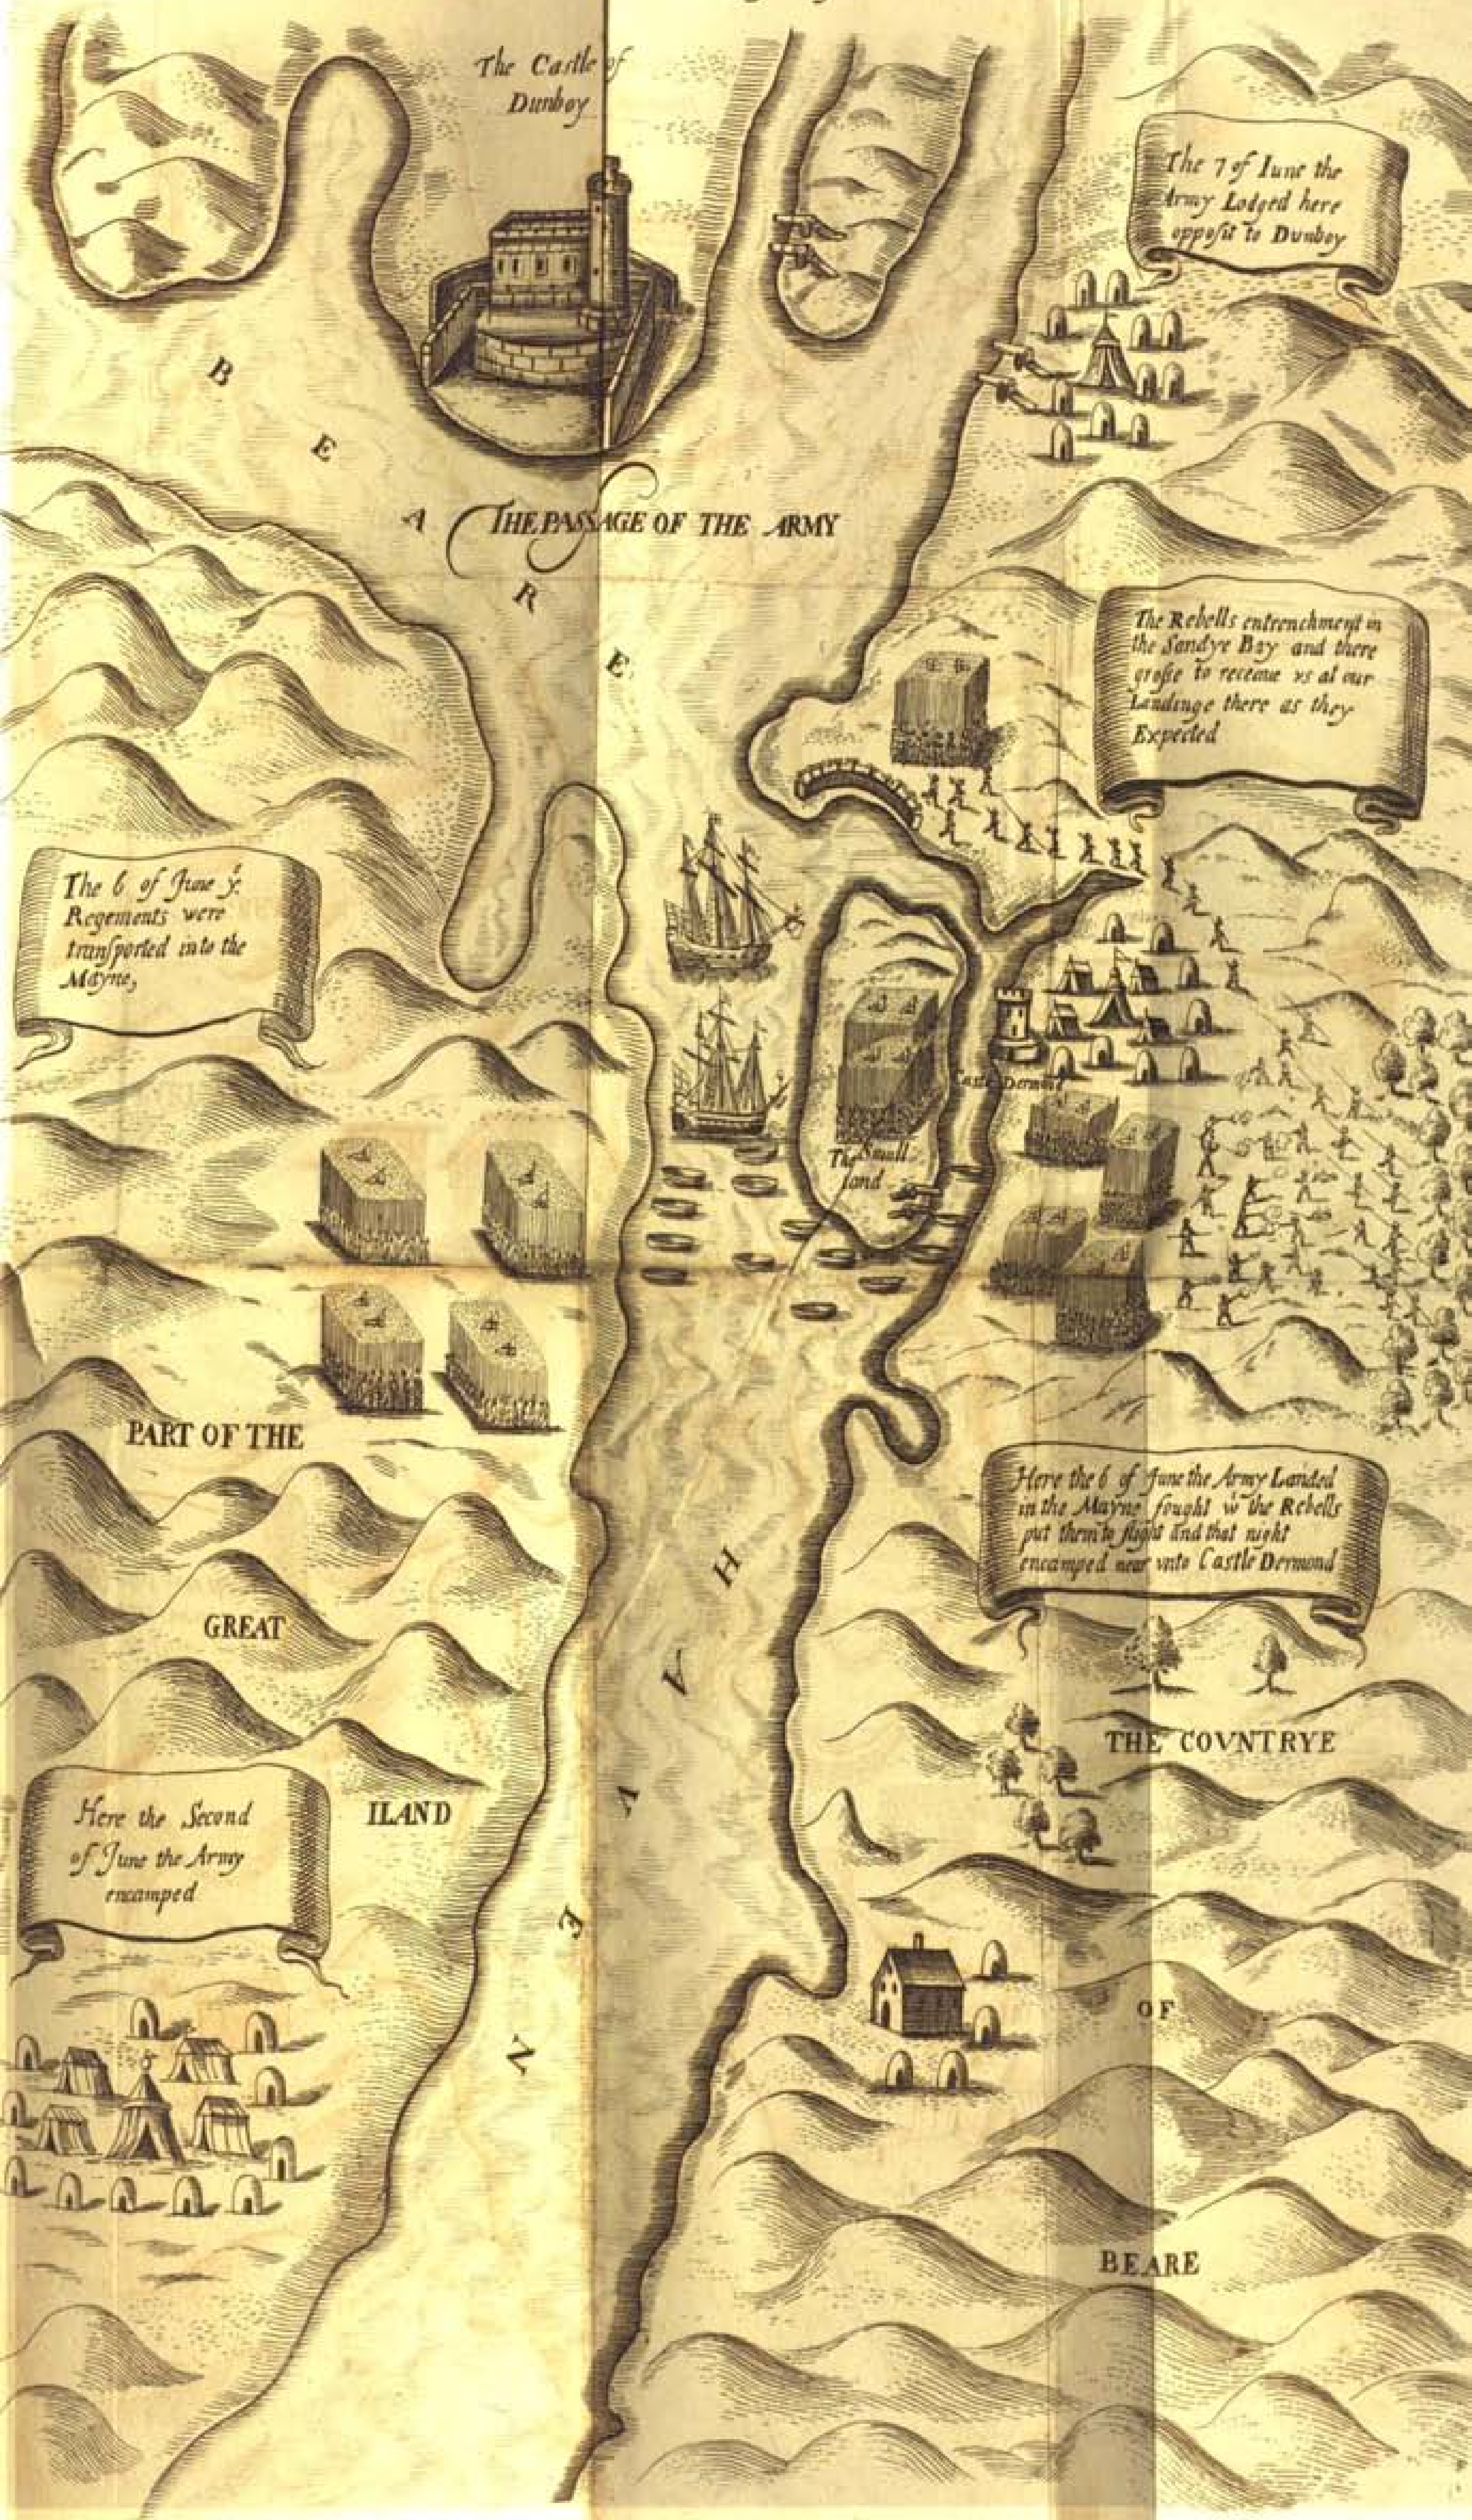 The Castle of
Dunboy
The 7 of Iune the
Army Lodged here
opposit to Dunboy
BEARE
THE PASSAGE OF THE ARMY
The Rebells entrenchment in
the Sandye Bay and there
grosse to receaue vs at our
Landinge there as they
Expected
The 6 of June ye
Regements were
transported into the
Mayne,
Castle Dermond
The Small
Iland
PART OF THE
GREAT
ILAND
Here the 6 of June the Army Landed
in the Mayne fought wth the Rebells
put them to flight and that night
encamped near vnto Castle Dermond
HAVEN
THE COVNTRYE
OF
BEARE
Here the Second
of June the Army
encamped